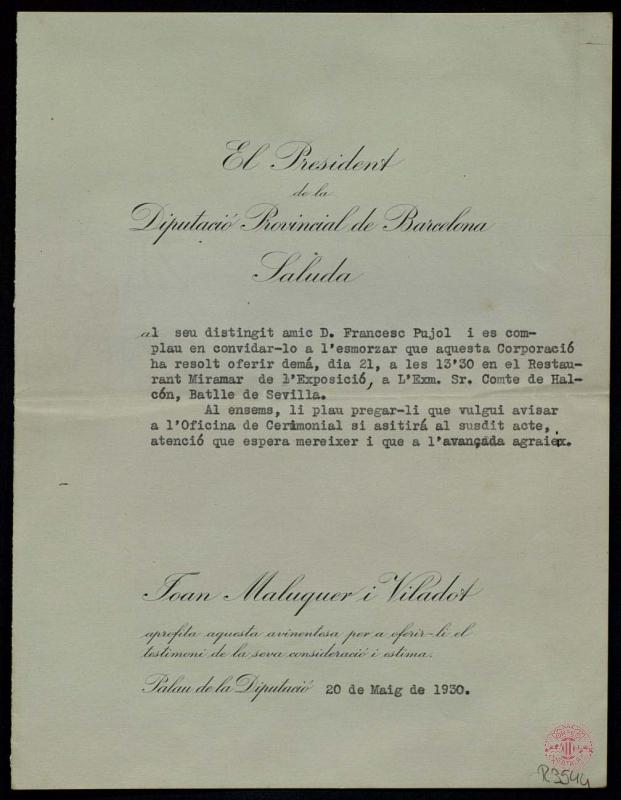 El President
de la
Diputació Provincial de Barcelona
Saluda
al seu distingit amic D. Francesc Pujol i es com-
plau en convidar-lo a l'esmorzar que aquesta Corporació
ha resolt oferir demá, dia 21, a les 13'30 en el Restau-
rant Miramar de l'Exposició, a L'Exm. Sr. Comte de Hal-
cón, Batlle de Sevilla.
Al ensems, li plau pregar-li que vulgui avisar
a l'Oficina de Cerimonial si asitirá al susdit acte,
atenció que espera mereixer i que a l'avançada agraeix.
Joan Maluquer i Viladot
aprofita aquesta avinentesa per a oferir-li el
testimoni de la seva consideració i estima.
Palau de la Diputació 20 de Maig de 1930.
R3544